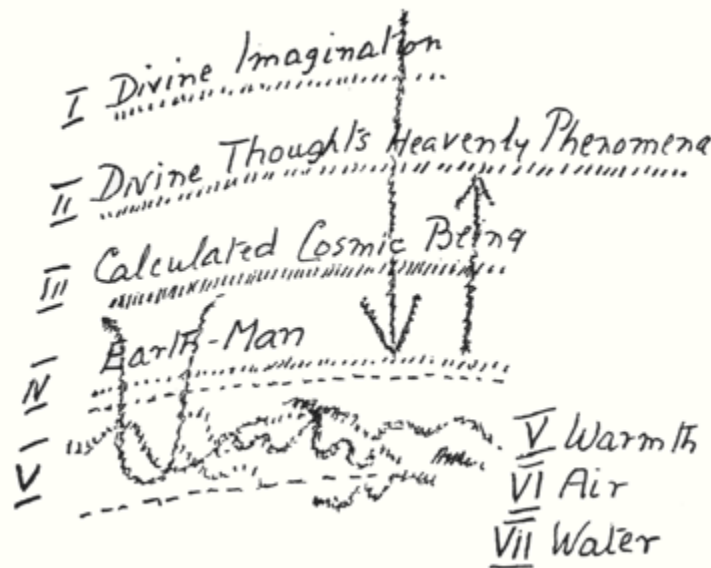 I Divine Imagination
II Divine Thoughts Heavenly Phenomena
III Calculated Cosmic Being
IV Earth-Man
V
V Warmth
VI Air
VII Water